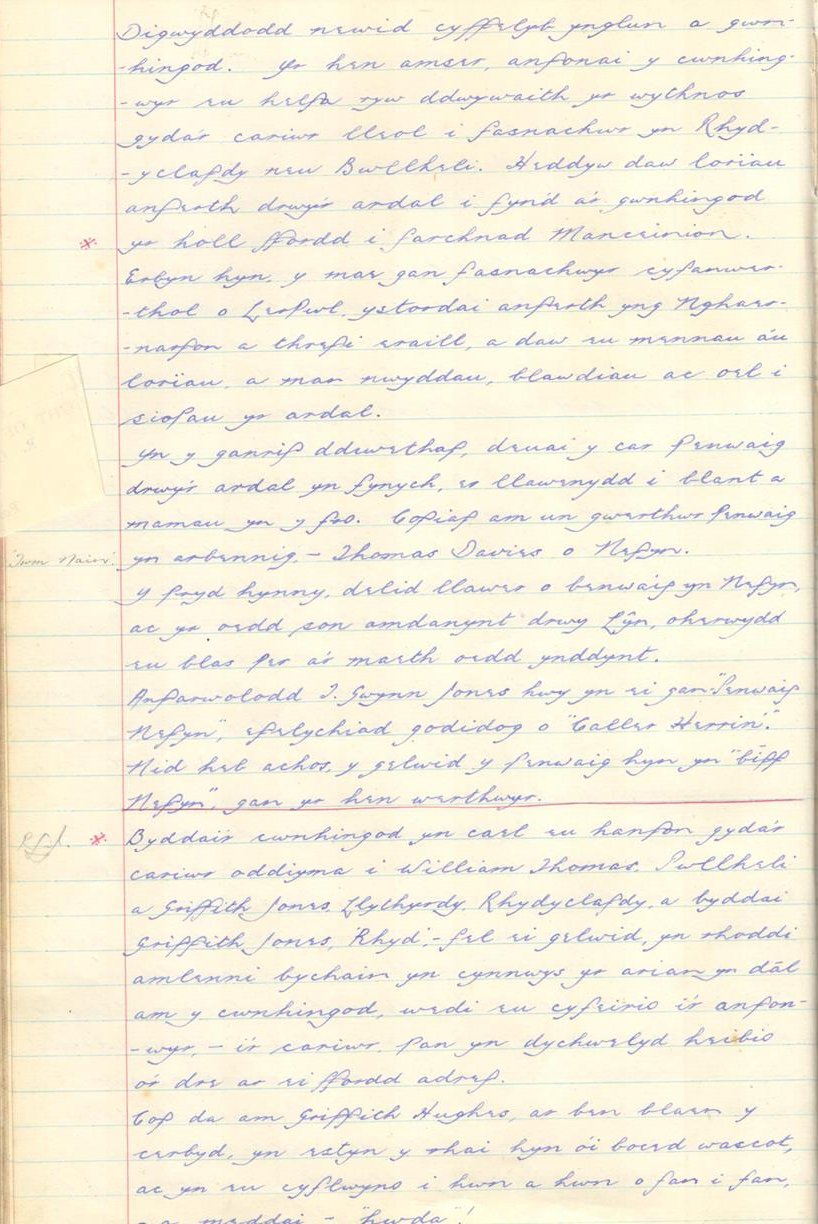 Digwyddodd newid cyffelyb ynglun a gwn-
-hingod. Yr hen amser, anfonai y cwnhing-
-wyr eu helfa ryw ddwywaith yr wythnos
gyda'r cariwr lleol i fasnachwr yn Rhyd-
-yclafdy neu Bwllheli. Heddyw daw loriau
anferth drwy'r ardal i fynd a'r gwnhingod
* yr holl ffordd i farchnad Manceinion.
Erbyn hyn, y mae gan fasnachwyr cyfanwer-
-thol o Lerpwl, ystordai anferth yng Nghaer-
-narfon a threfi eraill, a daw eu mennau a'u
loriau, a man nwyddau, blawdiau ac oel i
siopau yr ardal.
Yn y ganrif ddiwethaf, deuai y car penwaig
drwy'r ardal yn fynych, er llawenydd i blant a
mamau yn y fro. Cofiaf am un gwerthwr penwaig
'Twm Nain'. yn arbennig, - Thomas Davies o Nefyn.
Y pryd hynny, delid llawer o benwaig yn Nefyn,
ac yr oedd son amdanynt drwy Lŷn, oherwydd
eu blas per a'r maeth oedd ynddynt.
Anfarwolodd T. Gwynn Jones hwy yn ei gan "Penwaig
Nefyn", efelychiad godidog o "Caller Herrin".
Nid heb achos, y gelwid y penwaig hyn yn "biff
Nefyn", gan yr hen werthwyr.
* Byddai'r cwnhingod yn cael eu hanfon gyda'r
cariwr oddiyma i William Thomas, Pwllheli
a Griffith Jones, Llythyrdy, Rhydyclafdy, a byddai
Griffith Jones, 'Rhyd', - fel ei gelwid, yn rhoddi
amlenni bychain yn cynnwys yr arian yn dâl
am y cwnhingod, wedi eu cyfeirio i'r anfon-
-wyr, - i'r cariwr, pan yn dychwelyd heibio
o'r dre ar ei ffordd adref.
Cof da am Griffith Hughes, ar ben blaen y
cerbyd, yn estyn y rhai hyn o'i boced wascot,
ac yn eu cyflwyno i hwn a hwn o fan i fan,
- a meddai - "hwda"!